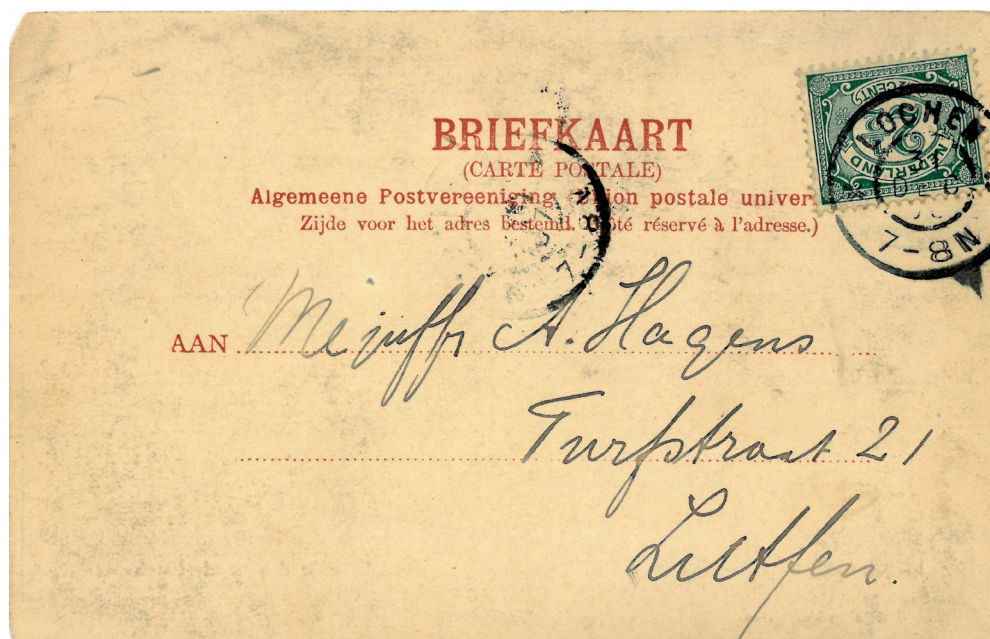 BRIEFKAART
(CARTE POSTALE)
Algemeene Postvereeniging (Union postale univer
Zijde voor het adres bestemd. (Côté réservé à l'adresse.)
NEDERLAND
CENT
LOCHEM
7-8N
7-8
AAN Mejuffr A. Hagens
Turfstraat 21
Zutfen.